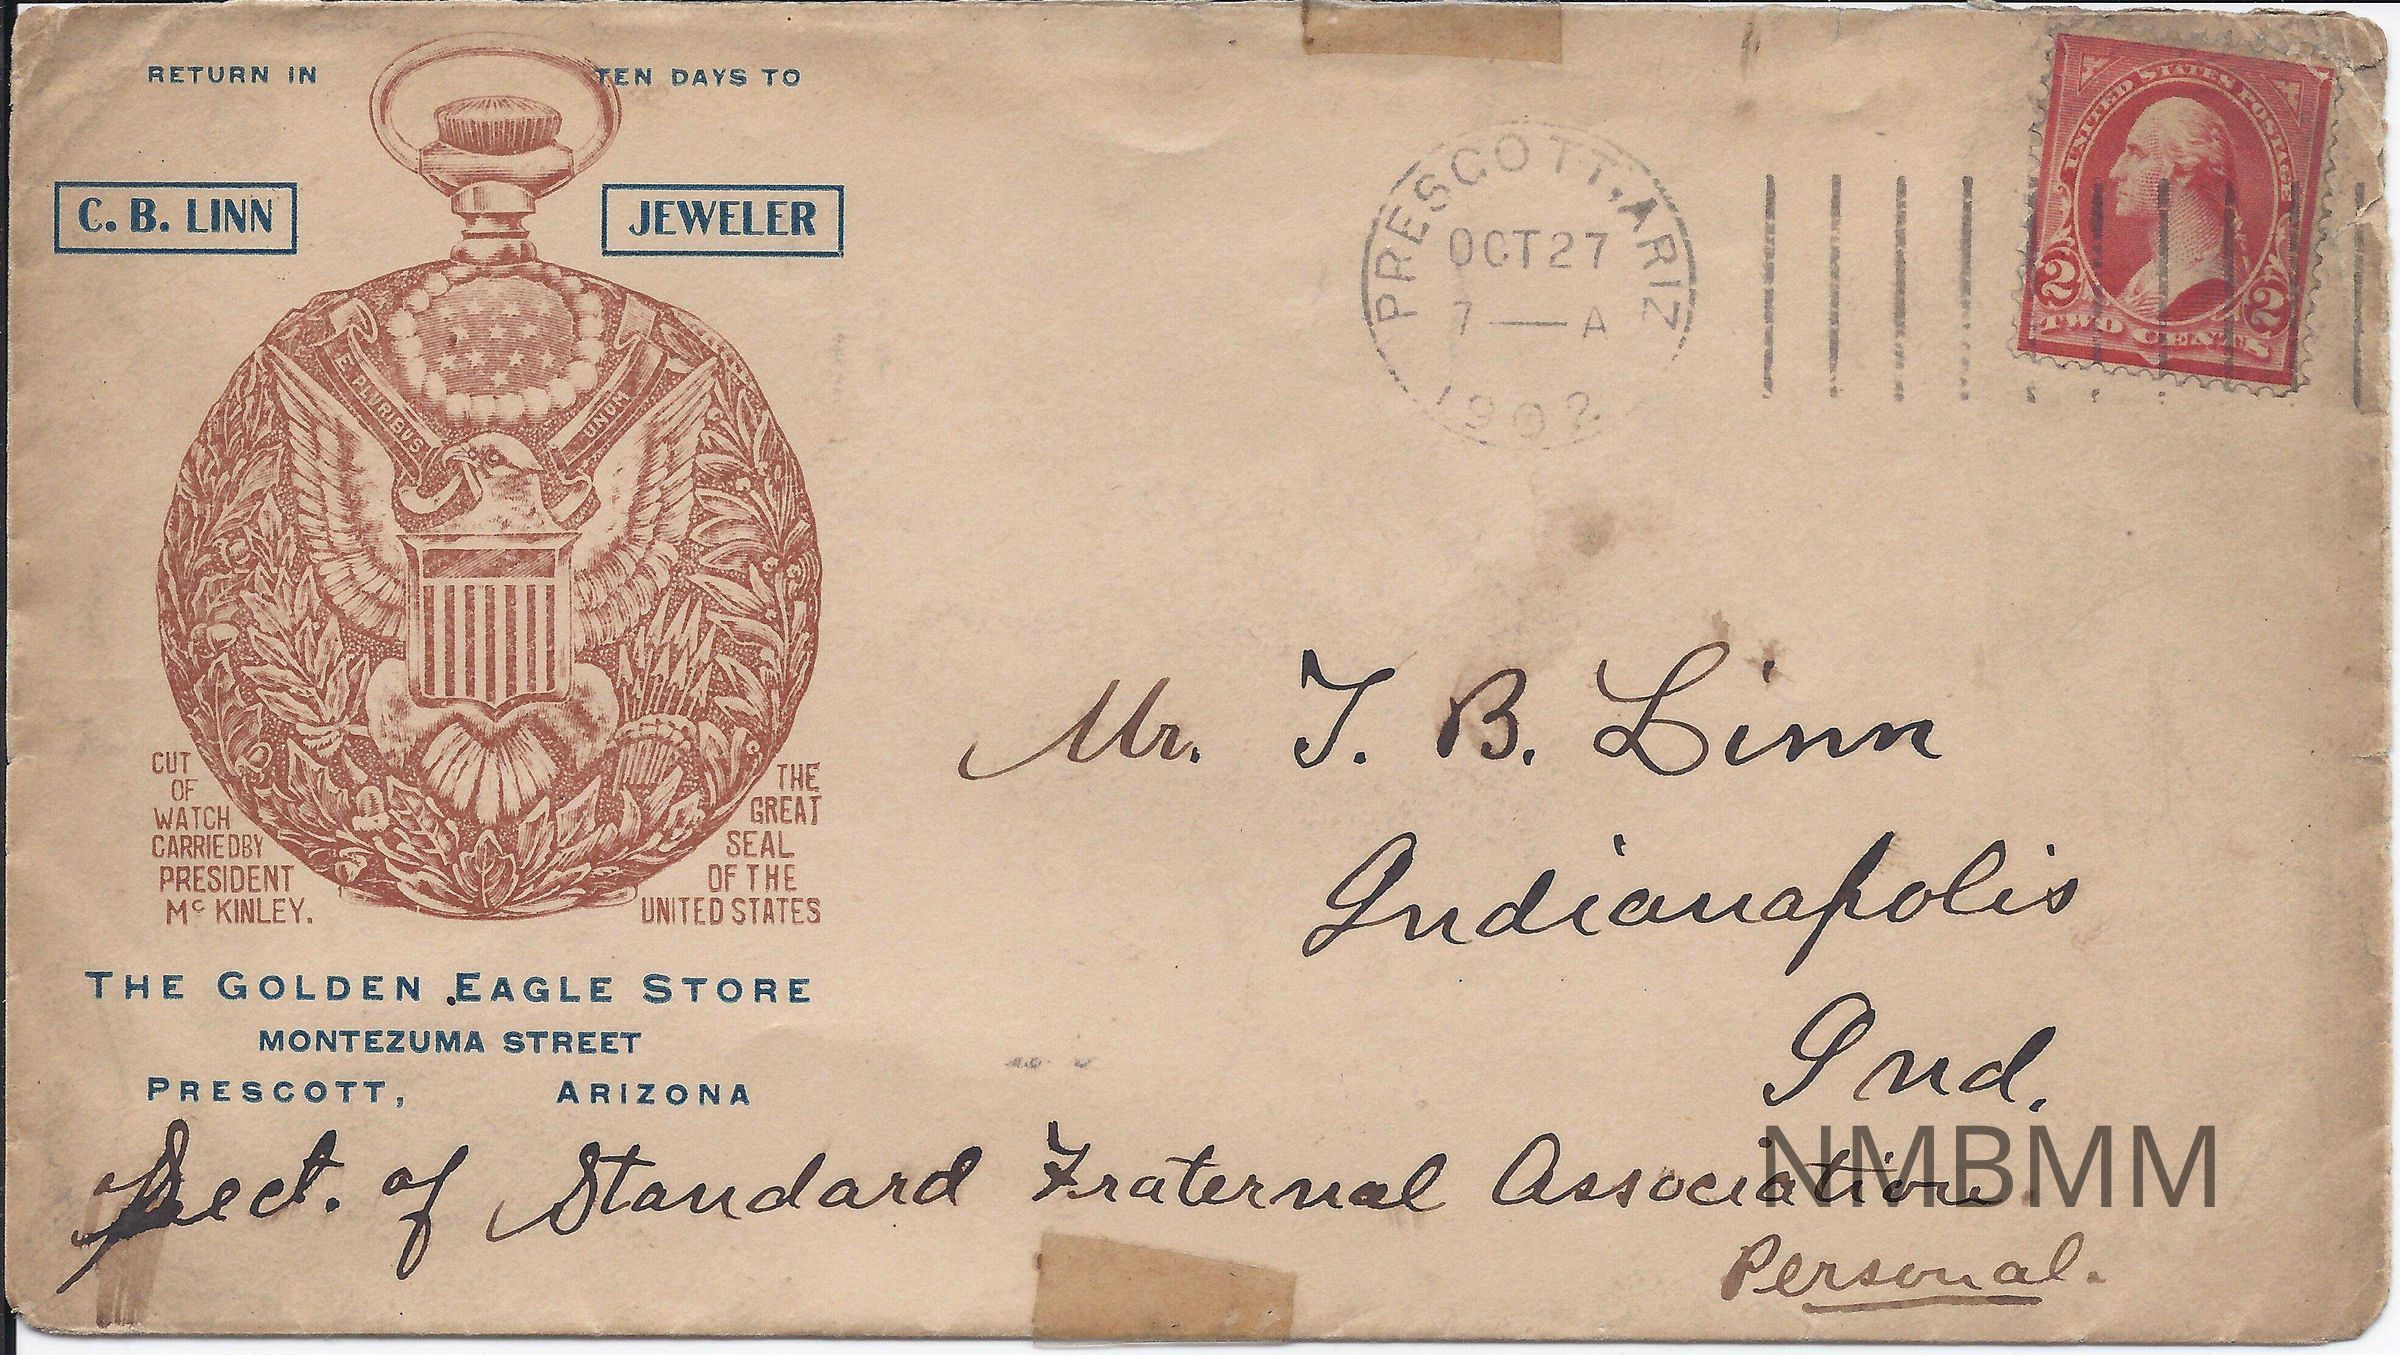 RETURN IN TEN DAYS TO
C. B. LINN JEWELER
E PLURIBUS UNUM
CUT
OF
WATCH
CARRIED BY
PRESIDENT
Mc KINLEY.
THE
GREAT
SEAL
OF THE
UNITED STATES
THE GOLDEN EAGLE STORE
MONTEZUMA STREET
PRESCOTT, ARIZONA
PRESCOTT, ARIZ
OCT 27
7 — A
1902
UNITED STATES POSTAGE
2 2
TWO CENTS
Mr. T. B. Linn
Indianapolis
Ind.
Sect. of Standard Fraternal Association
Personal.
NMBMM